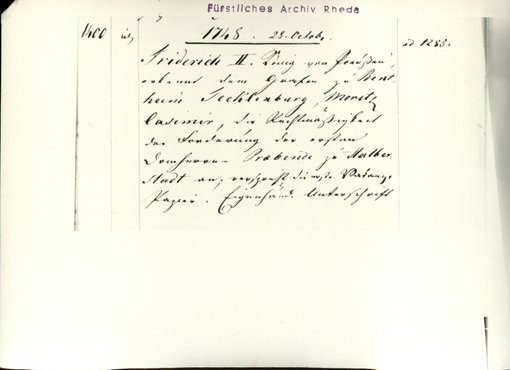 Fürstliches Archiv Rheda
1400
1748. 28. Octobr.
ad 1285.
Friderich II. König von Preußen,
erkennt dem Grafen zu Bent-
heim Tecklenburg, Moritz
Casimir, die Rechtmäßigkeit
der Forderung der ersten
Domherrn-Präbende zu Halber-
stadt an, verspricht die erste
Papier. Eigenhänd. Unterschrift